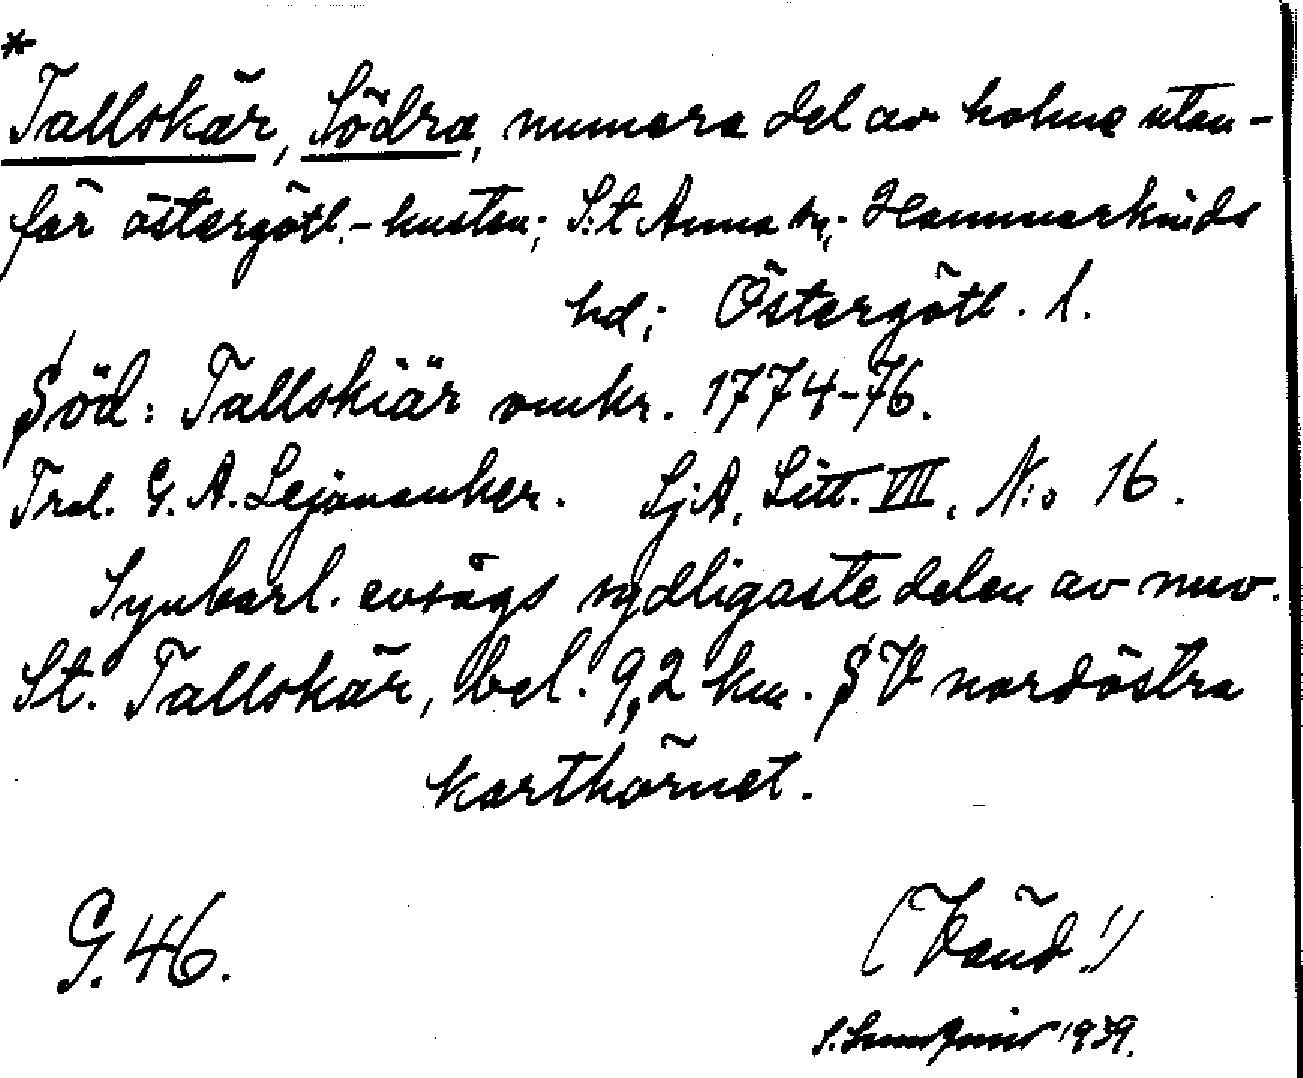 *
Tallskär, Södra, numera del av holme utan-
för östergötl.-kusten; S:t Anna sn; Hammarkinds
hd; Östergötl. l.
Söd: Tallskiär omkr. 1774-76.
Trol. G. A. Lejonanker. SjA, Litt. VII, N:o 16.
Synbarl. avsågs sydligaste delen av nuv.
St. Tallskär, bel. 9,2 km. SV nordöstra
karthörnet.
G. 46.
(Vänd!)
S. 1939.